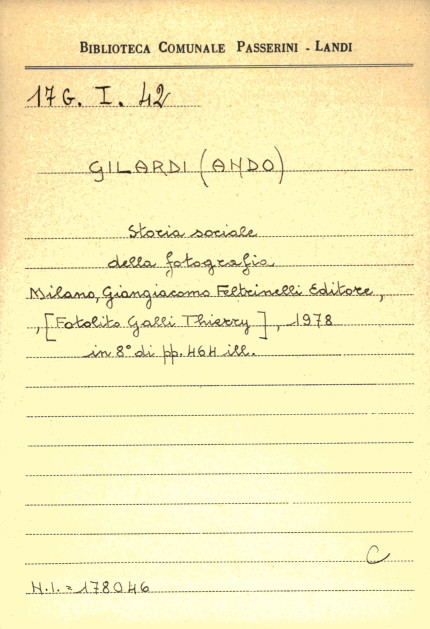 BIBLIOTECA COMUNALE PASSERINI - LANDI
17G. I. 42
GILARDI (ANDO)
Storia sociale
della fotografia
Milano, Giangiacomo Feltrinelli Editore,
, [Fotolito Galli Thierry], 1978
in 8° di pp. 464 ill.
C
N.I. = 178046